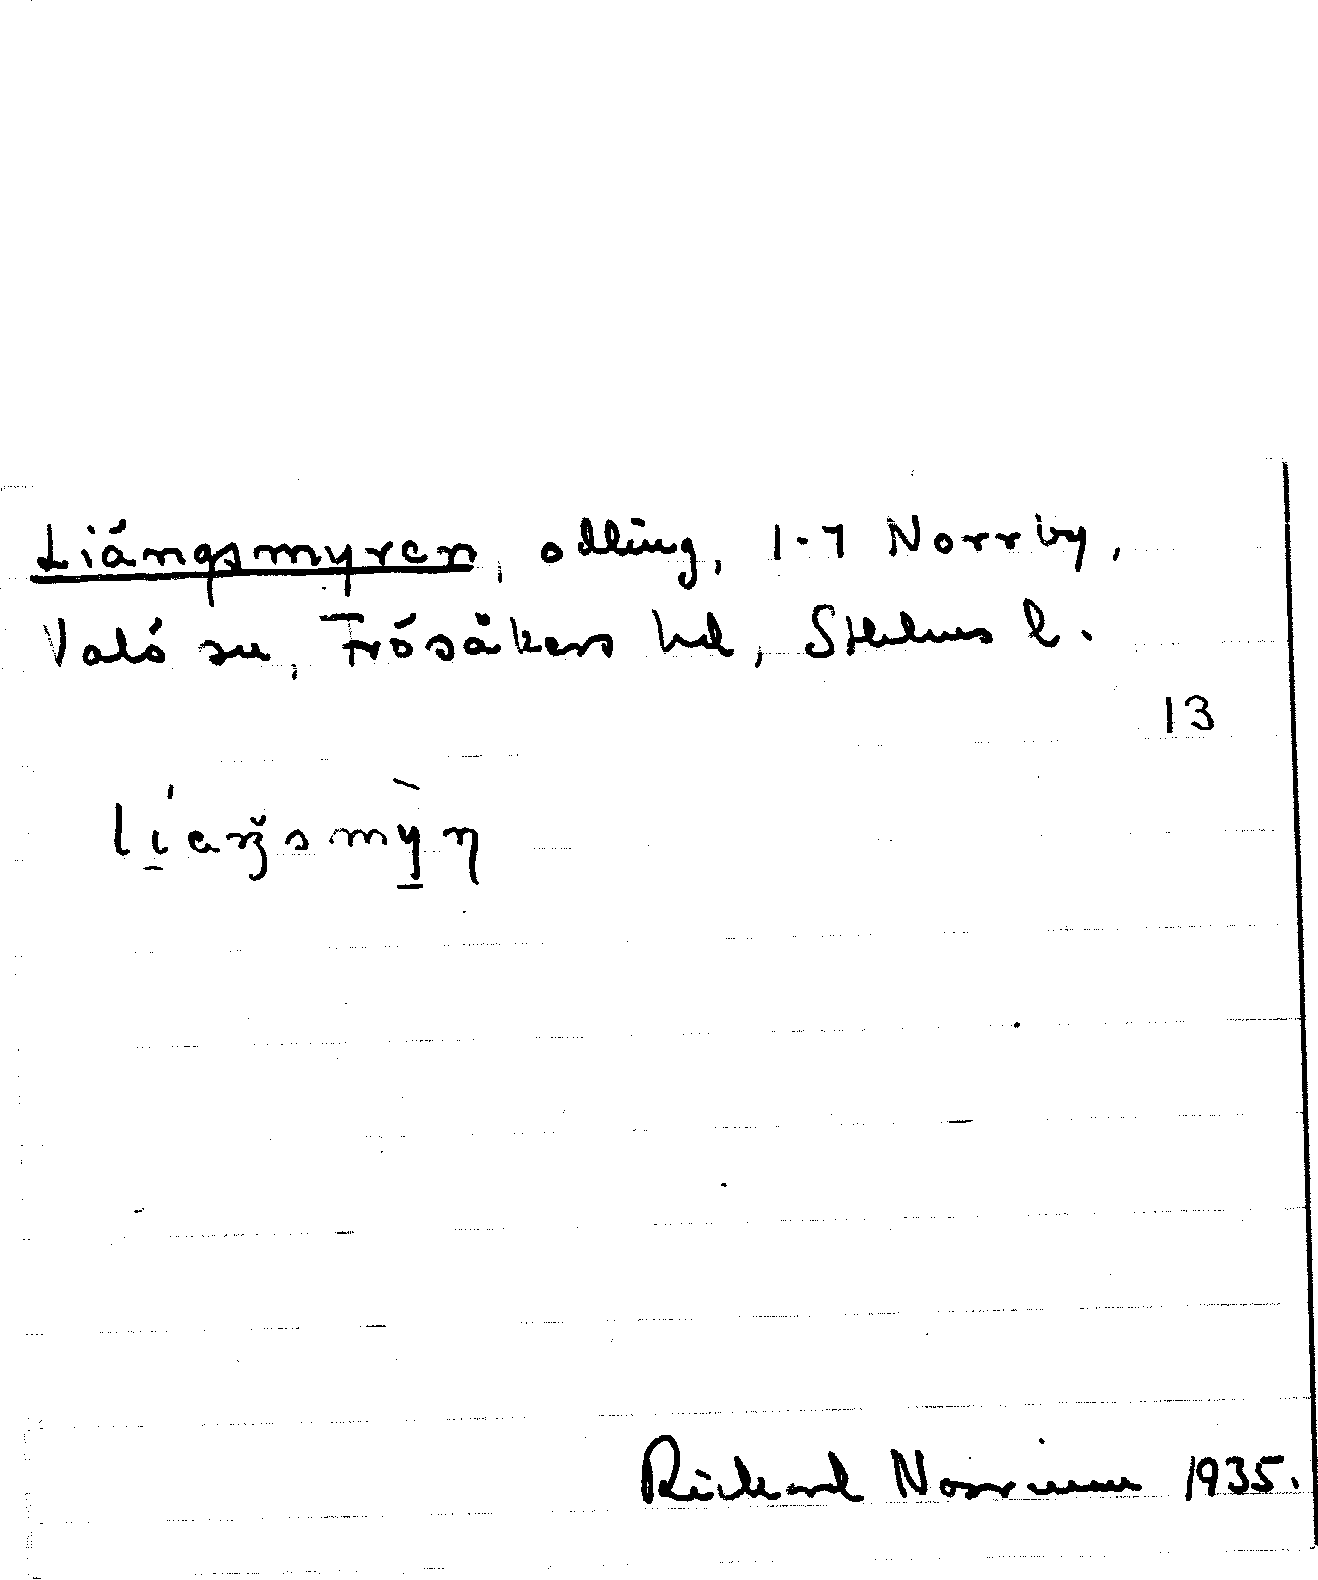 Liängsmyren, odling, 1-7 Norrby,
Valö sn, Frösåkers hd, Sthlms l.
13
Rickard Norrman 1935.